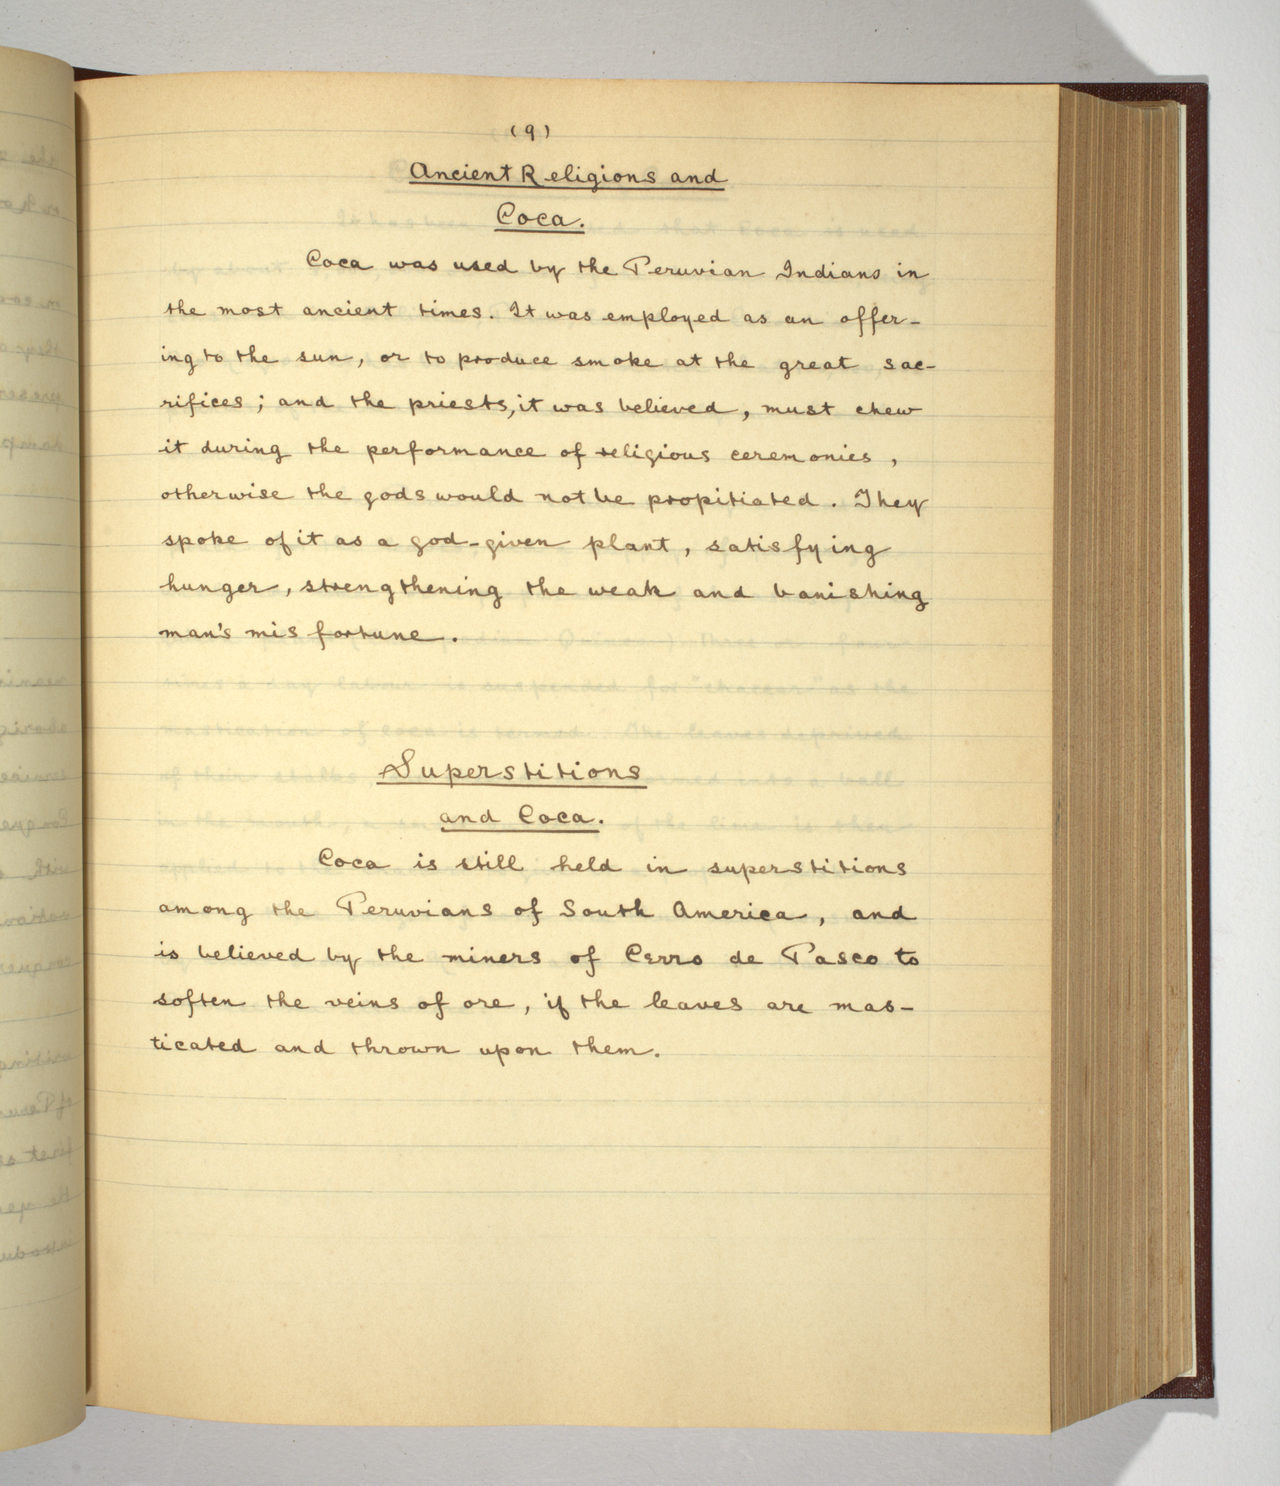 (9)
Ancient Religions and
Coca.
Coca was used by the Peruvian Indians in
the most ancient times. It was employed as an offer-
ing to the sun, or to produce smoke at the great sac-
rifices; and the priests, it was believed, must chew
it during the performance of religious ceremonies,
otherwise the gods would not be propitiated. They
spoke of it as a god-given plant, satisfying
hunger, strengthening the weak and banishing
man's misfortune.
Superstitions
and Coca.
Coca is still held in superstitions
among the Peruvians of South America, and
is believed by the miners of Cerro de Pasco to
soften the veins of ore, if the leaves are mas-
ticated and thrown upon them.